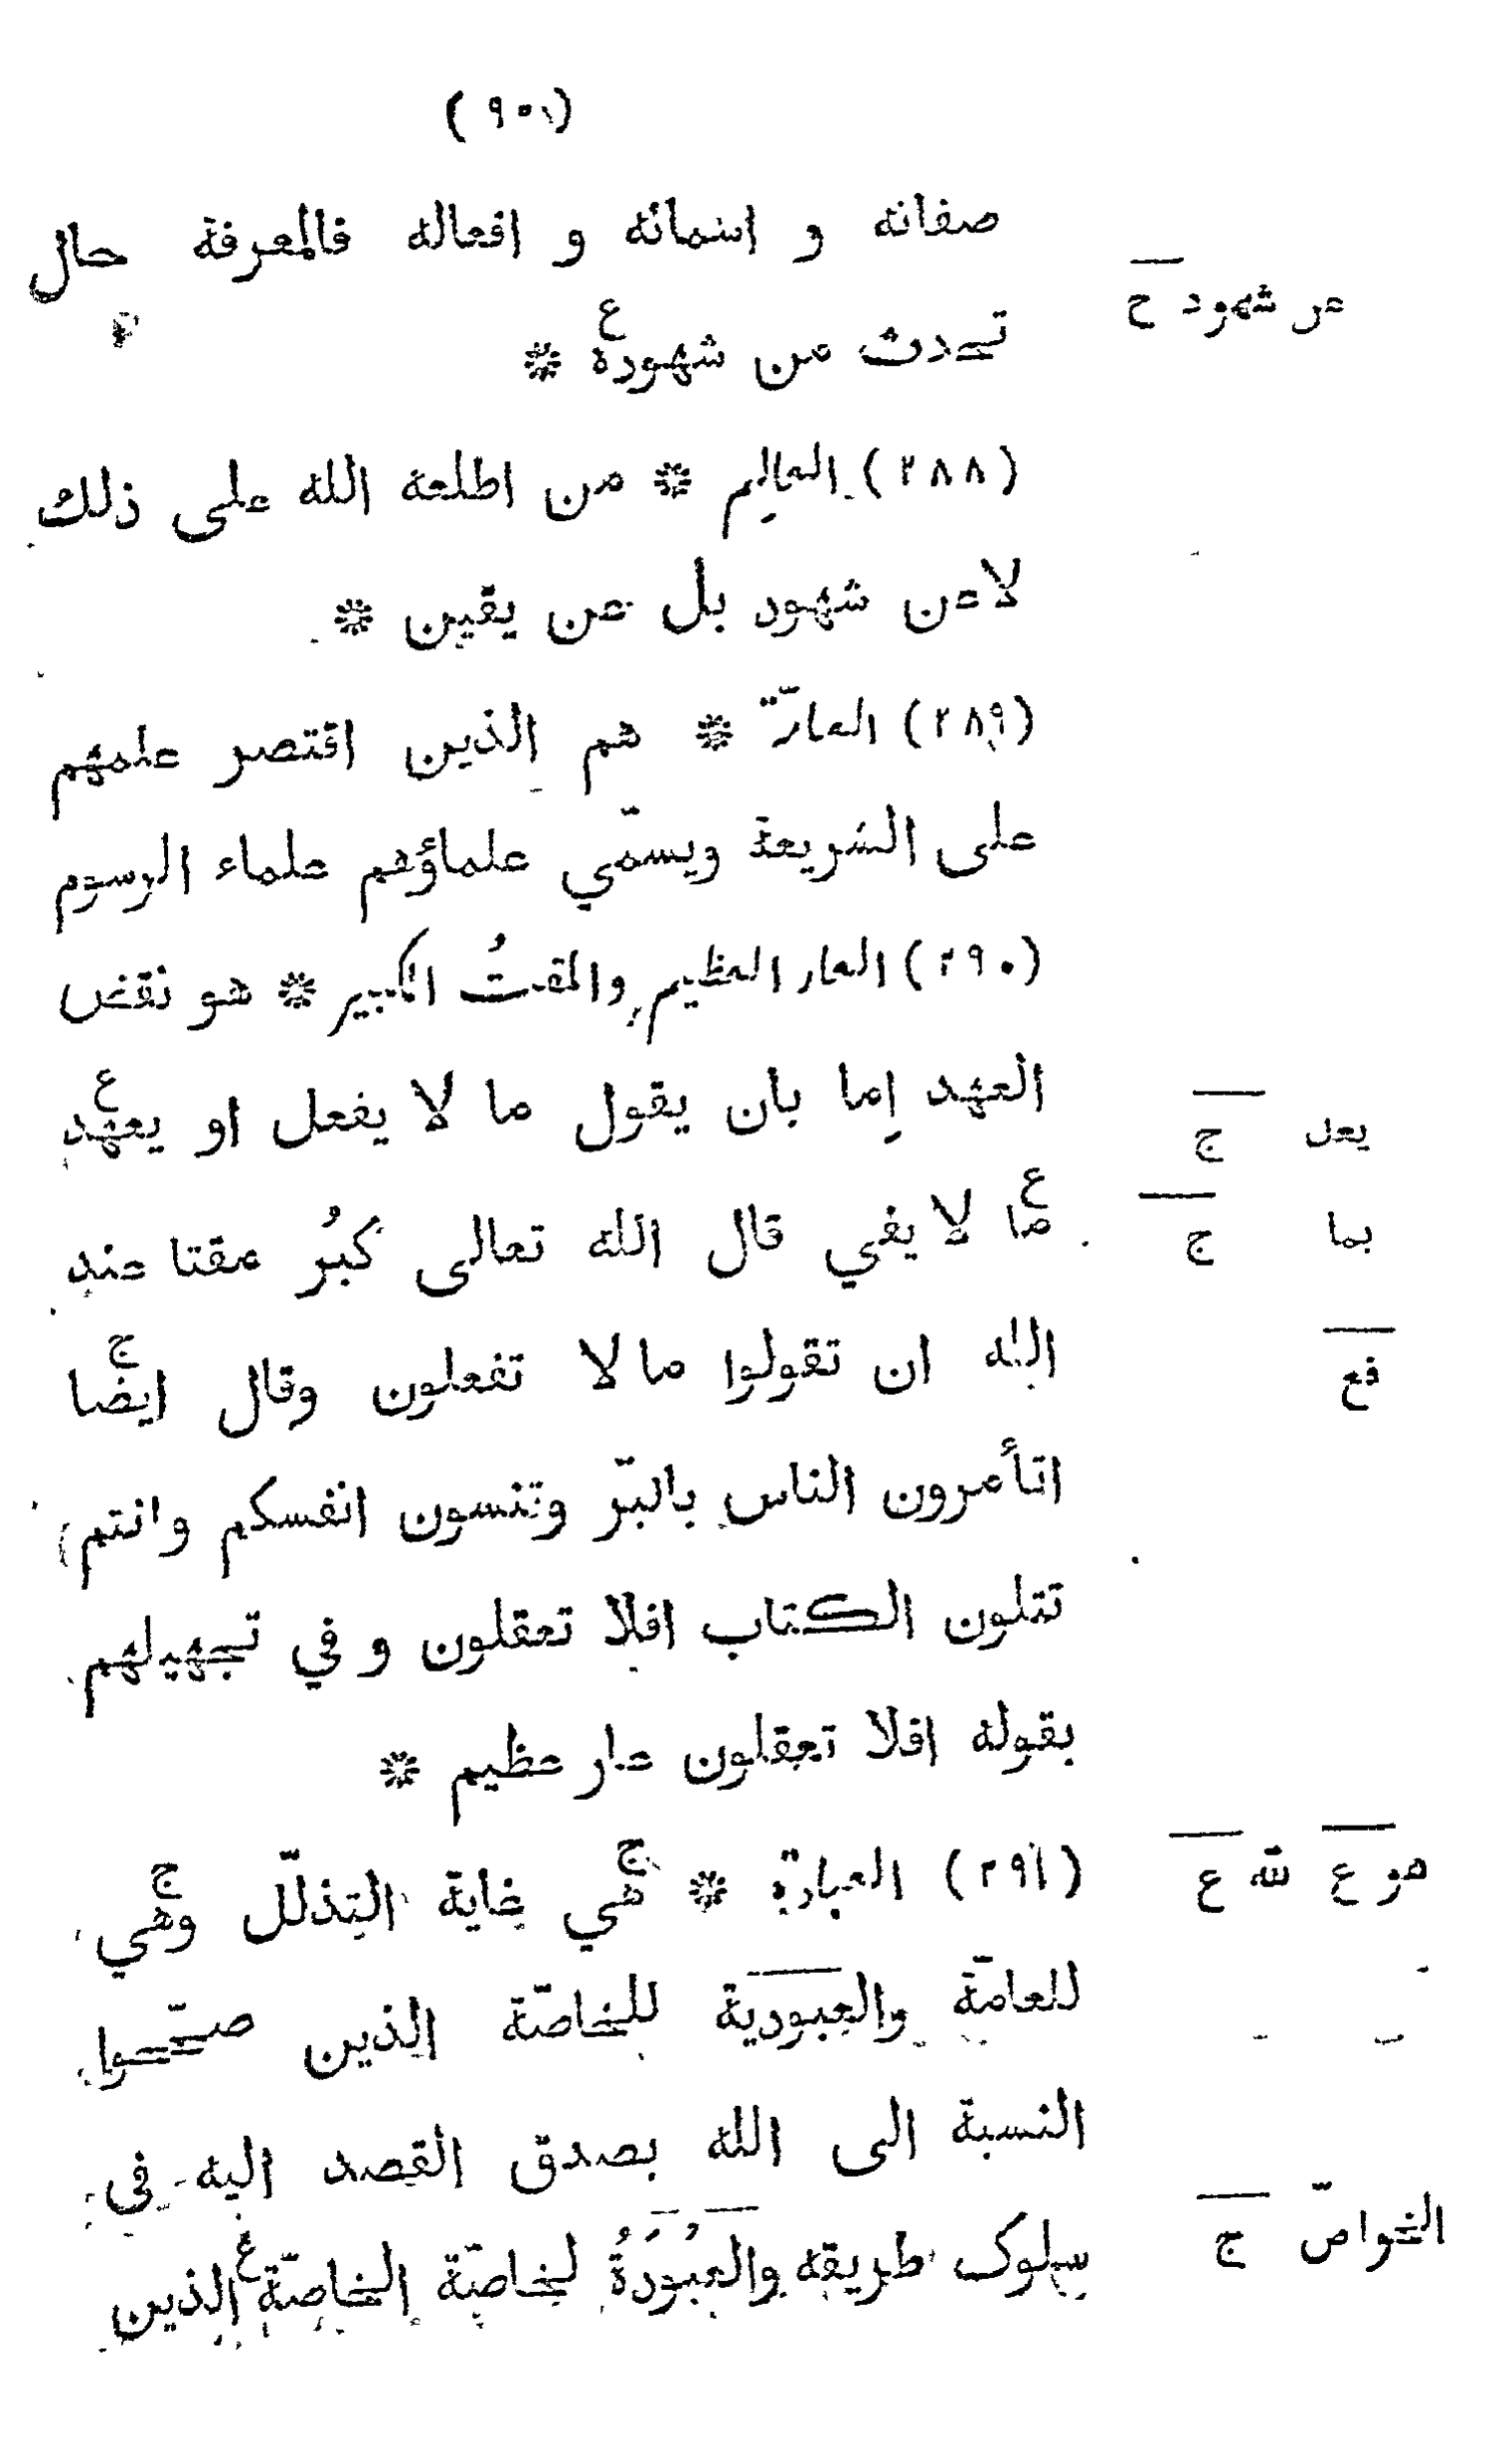 (١٠٩)
صفاته و اسمائه و افعاله فالمعرفة حال
تحدث من شهوده ع *
عن شهود ح
(٢٨٨) العالِم * من اطلعه الله على ذلك
لاعن شهود بل عن يقين *
(٢٨٩) العامّة * هم الذين اقتصر علمهم
على الشريعة ويسمّي علماؤهم علماء الرسوم
(٢٩٠) العار العظيم والمقتُ الكبير * هو نقض
العهد إما بان يقول ما لا يفعل او يعهد ع
يعل ج
ما ع لا يفي قال الله تعالى كبُر مقتا عند
بما ج
الله ان تقولوا مالا تفعلون وقال ايضا ج
فع
اتأمرون الناس بالبرّ وتنسون انفسكم وانتم
تتلون الكتاب افلا تعقلون و في تجهيلهم
بقوله افلا تعقلون عار عظيم *
(٢٩١) العبادة * هي ج غاية التذلّل وهي ج
هو ع لله ع
للعامّة والعبودية للخاصّة الذين صحّحوا
النسبة الى الله بصدق القصد اليه في
سلوك طريقه والعبُودَةُ لخاصّة الخاصّة ع الذين
الخواصّ ج